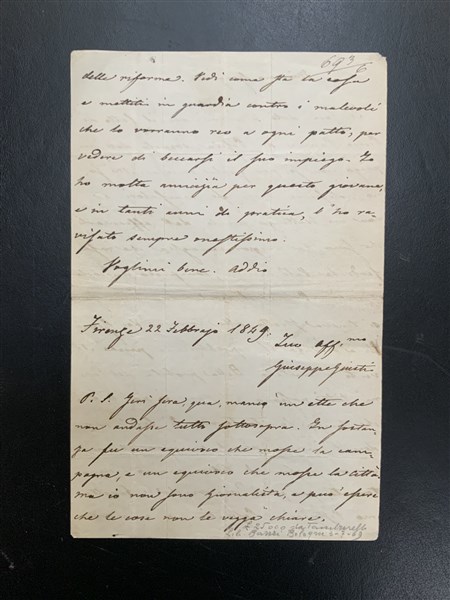 693/6
delle riforme. Vedi come sta la cosa
e mettiti in guardia contro i malevoli
che lo vorranno reo a ogni patto, per
vedere di beccarsi il suo impiego. Io
ho molta amicizia per questo giovane,
e in tanti anni di pratica, l'ho ra-
visato sempre onestissimo.
Voglimi bene. Addio
Firenze 22 Febbrajo 1849.
Tuo aff.mo
Giuseppe Giusti
P. S. Jeri sera, qua, mancò un ette che
non andasse tutto sottosopra. In sostan-
za fu un equivoco che mosse la cam-
pagna, e un equivoco che mosse la città:
ma io non sono Giornalista, e può essere
che le cose non le vegga chiare.
£ 25000 da
Lib. Bologna 2-7-69